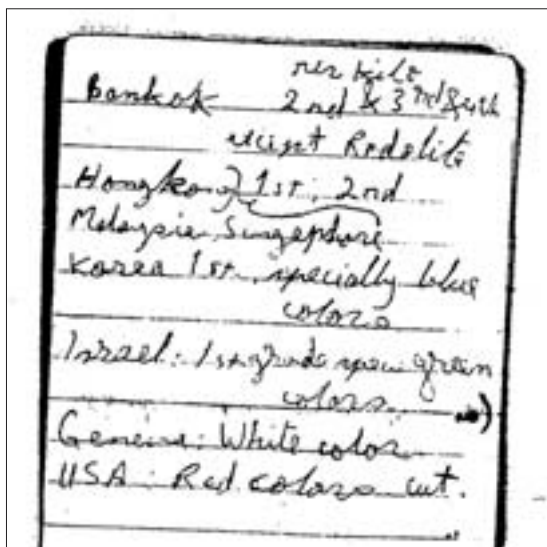 Bankok 2nd & 3rd & 4th
Redelite
Hongkong 1st, 2nd
Malaysia, Singaphore
Korea 1st, specially blue
colors
Israel: 1st grade green
colors
Geneva: White color
USA: Red colors cut.